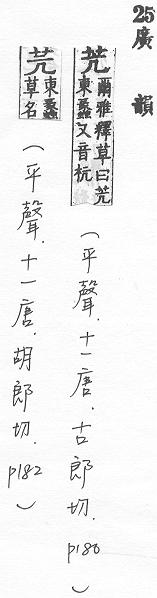 25廣韻
苀爾雅釋草曰苀東蠡又音杭
(平聲.十一唐.古郎切.p180)
苀東蠡草名
(平聲.十一唐.胡郎切.p182)